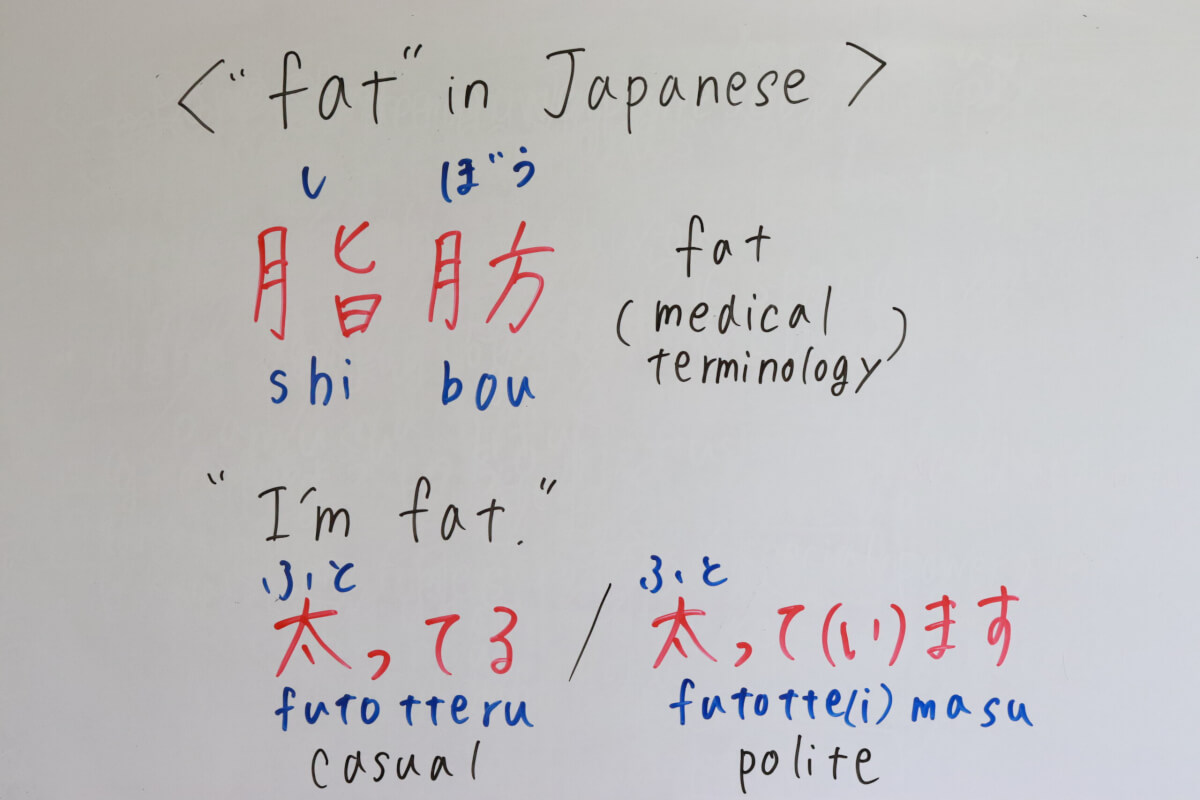 <"fat" in Japanese>
し ぼう
脂肪 fat
(medical
terminology)
shi bou
"I'm fat."
ふと ふと
太ってる / 太って(い)ます
futotteru futotte(i)masu
casual polite